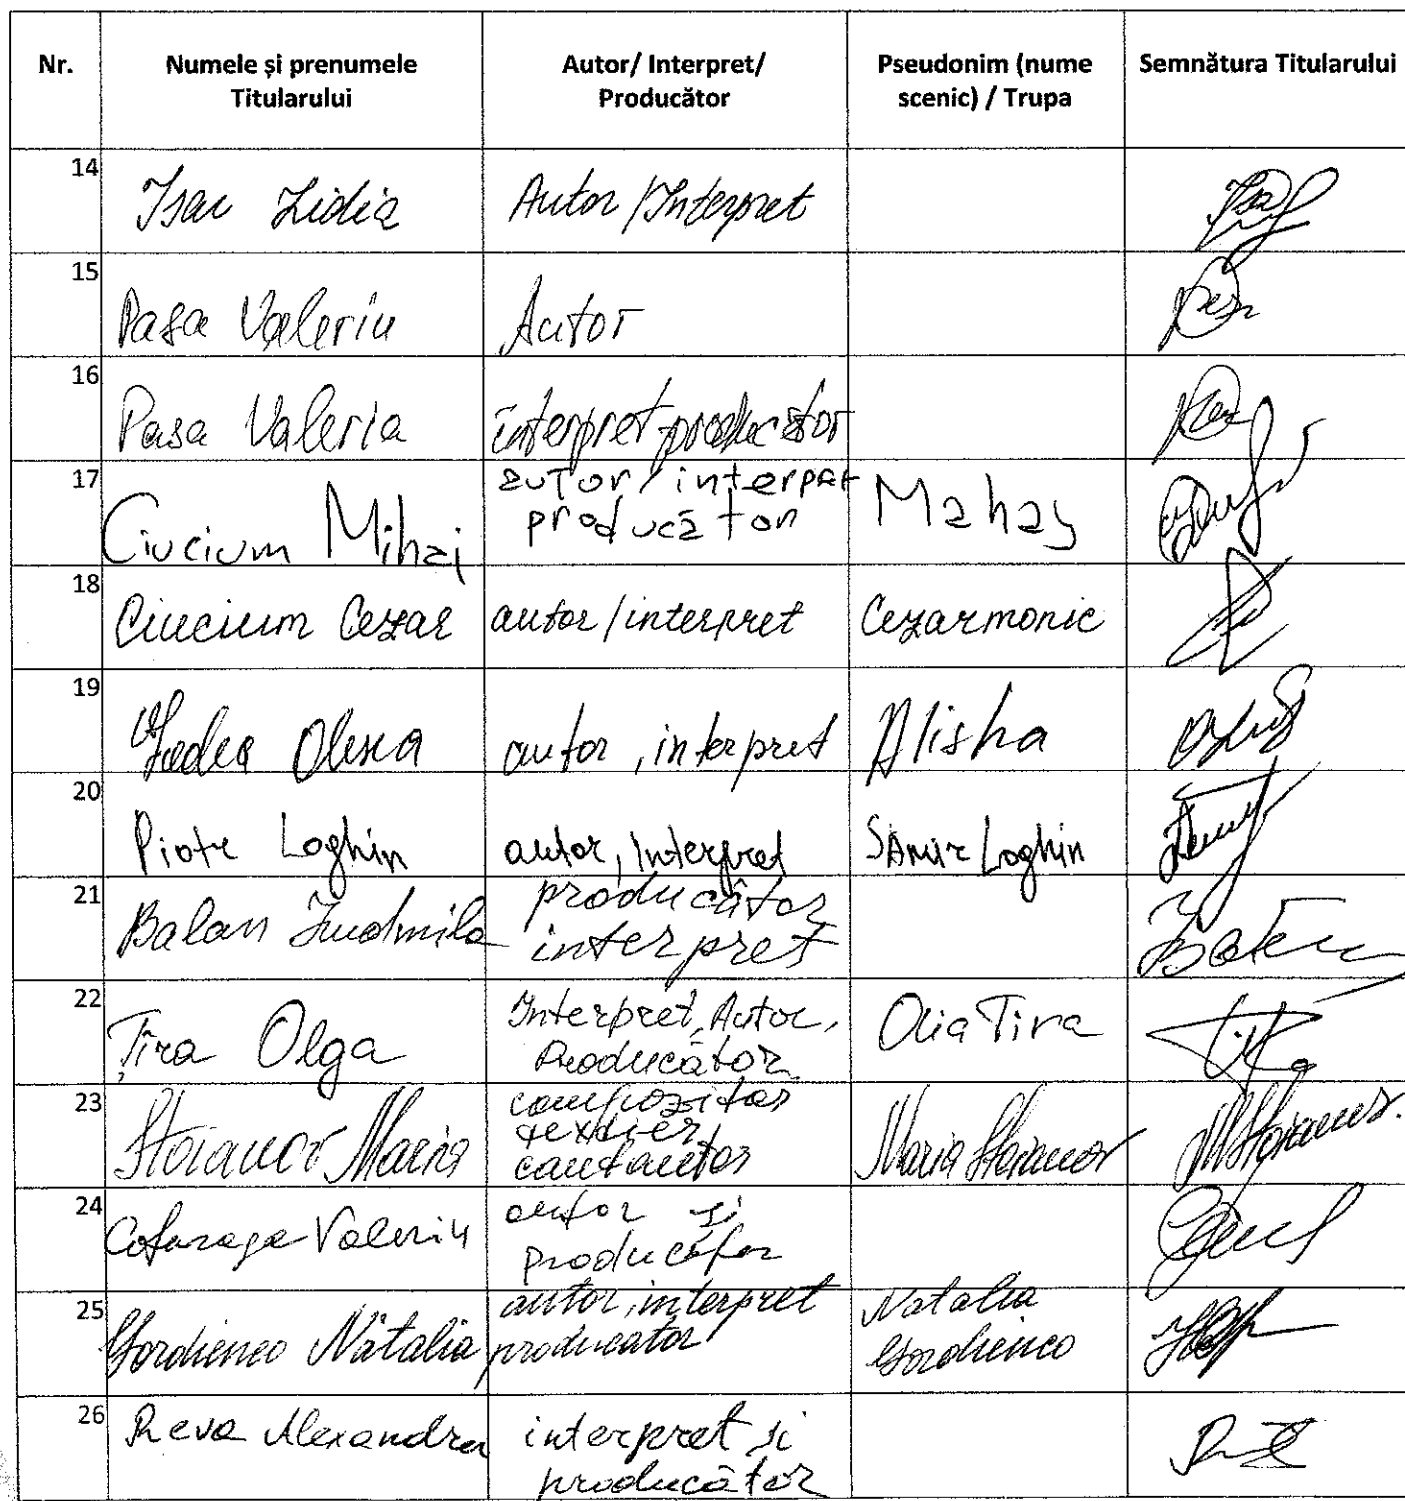 Nr. Numele și prenumele Titularului Autor/ Interpret/ Producător Pseudonim (nume scenic) / Trupa Semnătura Titularului
14 Isac Lidia Autor/Interpret
15 Pasa Valeriu Autor
16 Pasa Valeria interpret producător
17 Ciucium Mihai autor/interpret producător Mahay
18 Ciucium Cezar autor/interpret Cezarmonic
19 Olesea autor, interpret Alisha
20 Piotr Loghin autor, Interpret Samir Loghin
21 Balan Ludmila producător interpret
22 Țîra Olga Interpret, Autor, Producător Olia Tira
23 Stoianov Maria compozitor textier cantautor Maria Stoianov
24 Cataraga Valeriu autor și producător
25 Gordienco Natalia autor, interpret producator Natalia Gordienco
26 Reva Alexandra interpret si producător